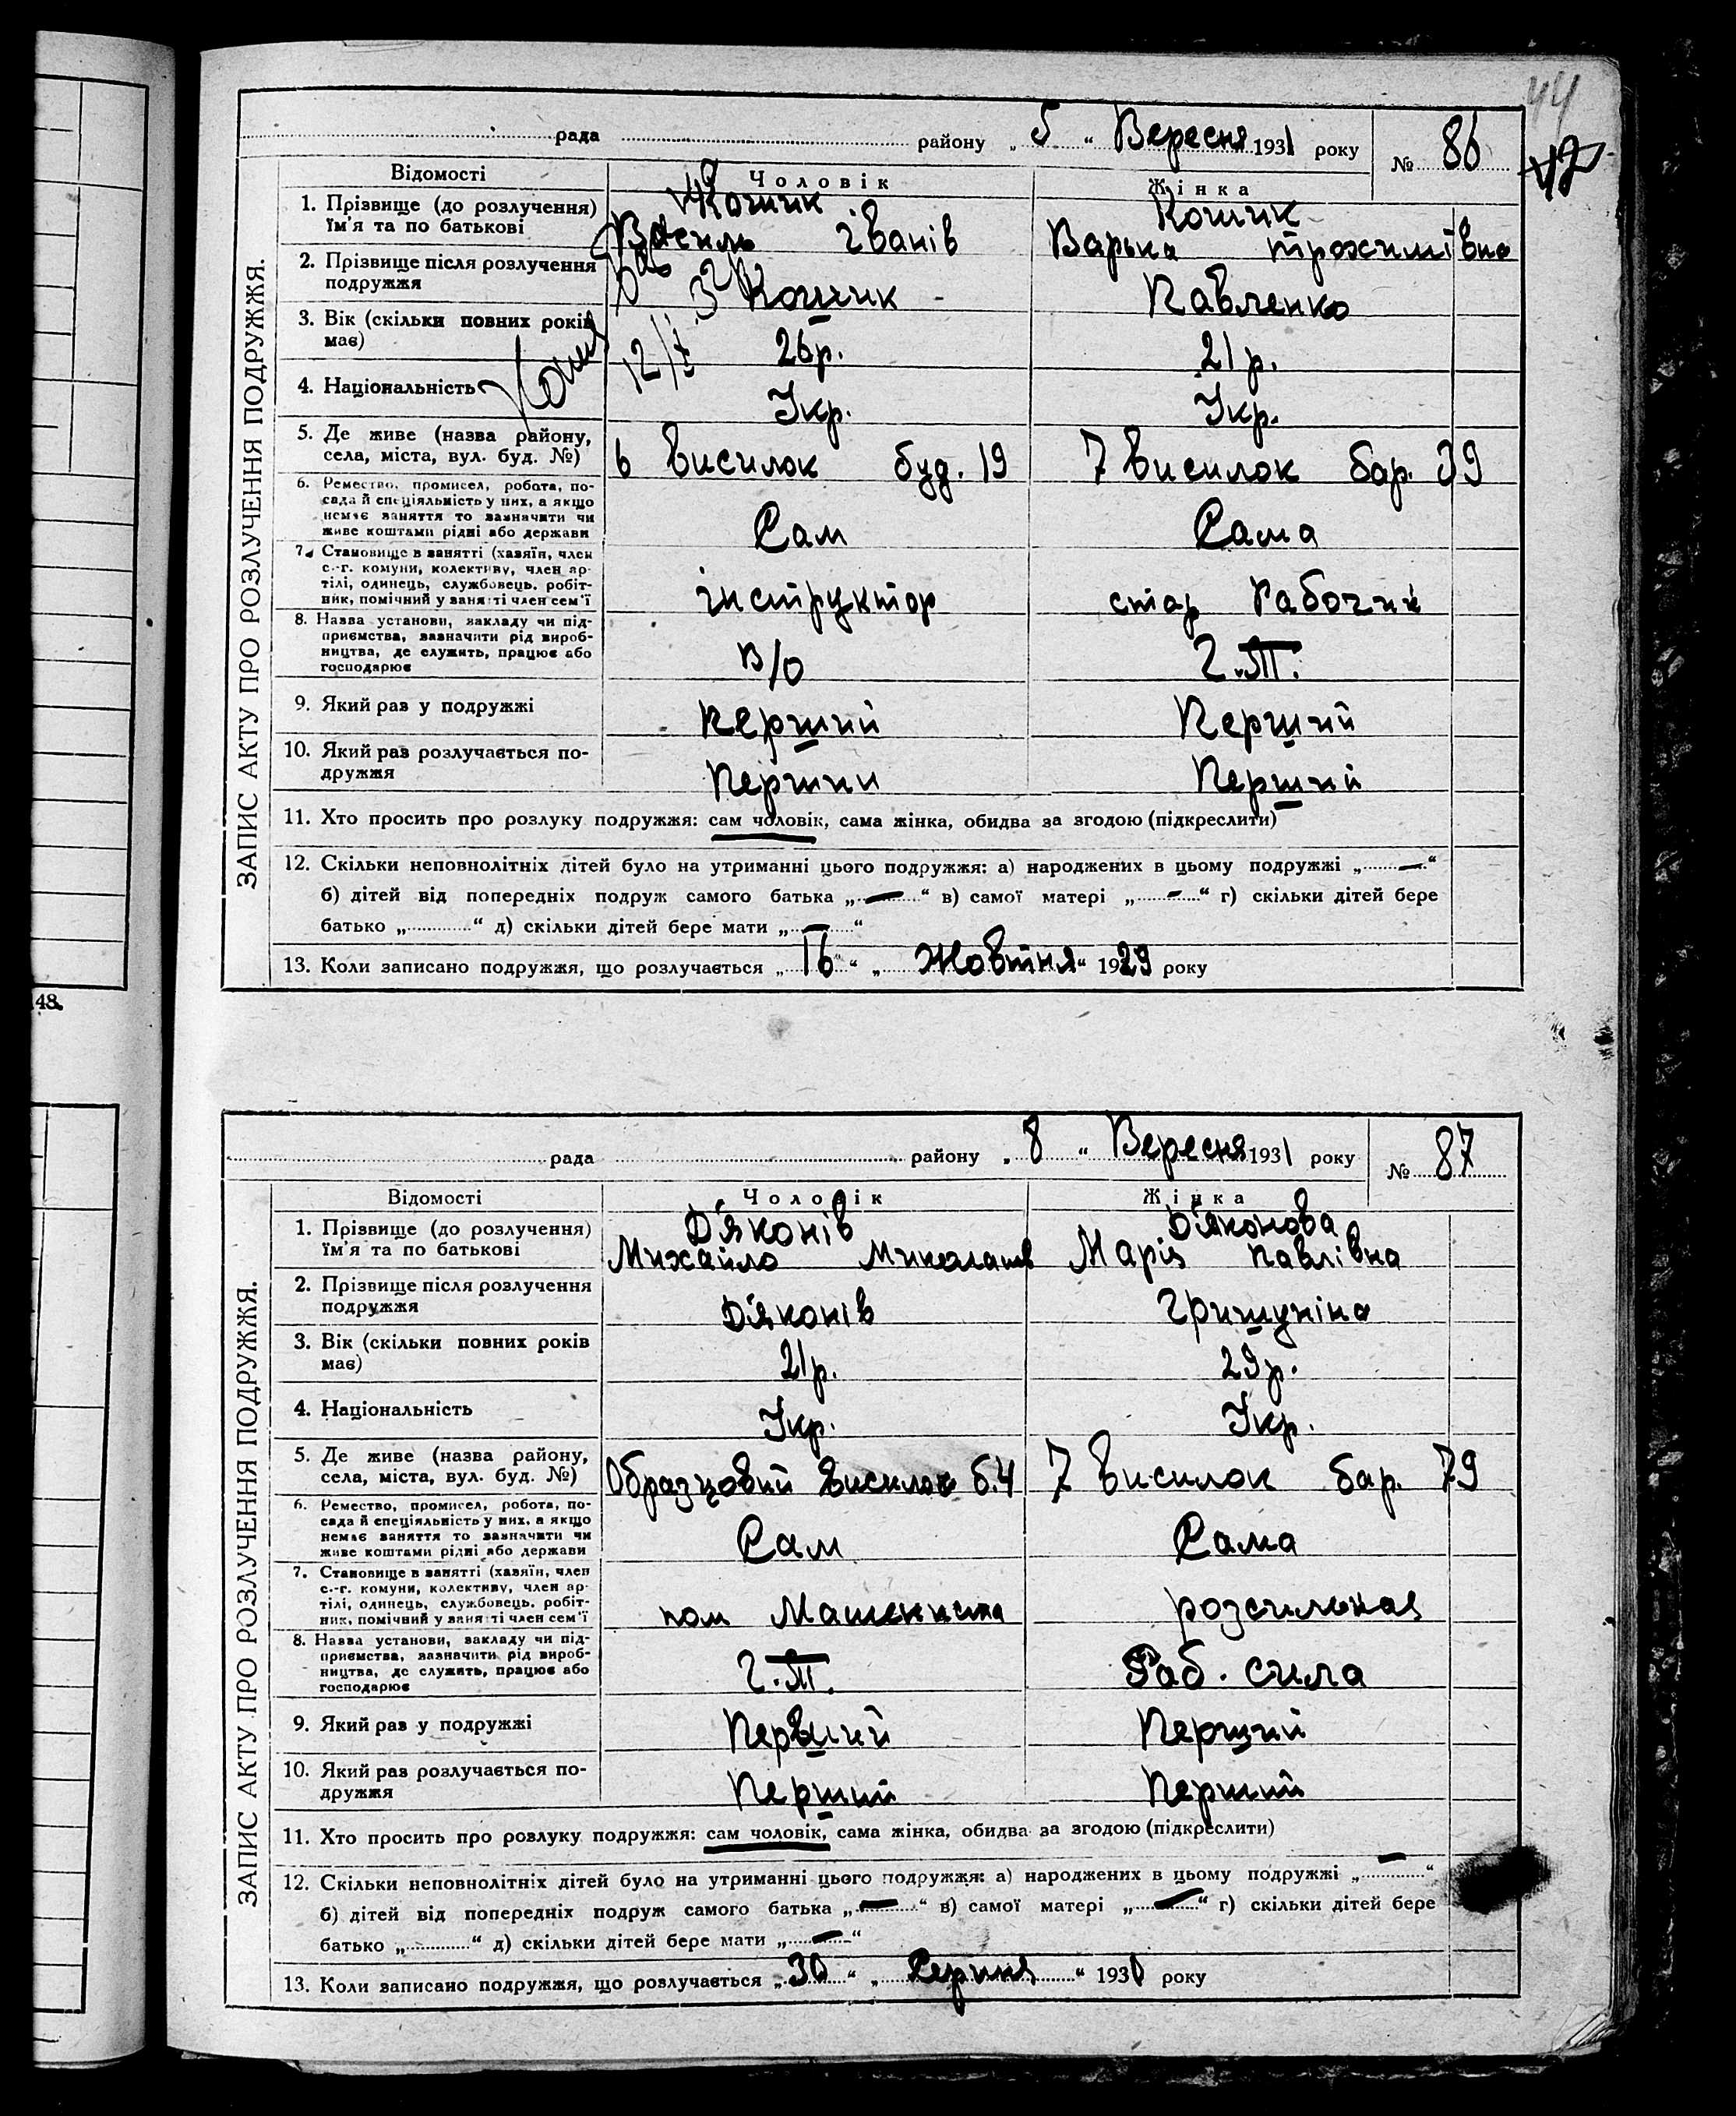 44
рада района „ 5 “ Вересня 1931 року № 86
42
ЗАПИС АКТУ ПРО РОЗЛУЧЕННЯ ПОДРУЖЖЯ.
Відомості Чоловік Жінка
1. Прізвище (до розлучення) їм'я та по батькові
Кошик
Василь Іванів
Кошик
Варька Трохимівна
2. Прізвище після розлучення подружжя
Кошик
Павленко
3. Вік (скільки повних років має)
26р.
21р.
4. Національність
Укр.
Укр.
5. Де живе (назва району, села, міста, вул. буд. №)
6 висилок буд. 19
7 висилок бар. 39
6. Ремество, промисел, робота, по-
сада й спеціяльність у них, а якщо
немає заняття то зазначити чи
живе коштами рідні або держави
Сам
Сама
7. Становище в занятті (хазяїн, член
с.-г. комуни, колективу, член ар-
тілі, одинець, службовець, робіт-
ник, помічний у занятті член сем'ї
інструктор
стар Рабочий
8. Назва установи, закладу чи під-
приємства, зазначити рід вироб-
ництва, де служить, працює або
господарює
В/О
Г.Т.
9. Який раз у подружжі
Перший
Перший
10. Який раз розлучається по-
дружжя
Перший
Перший
11. Хто просить про розлуку подружжя: сам чоловік, сама жінка, обидва за згодою (підкреслити)
12. Скільки неповнолітніх дітей було на утриманні цього подружжя: а) народжених в цьому подружжі „ — “
б) дітей від попередніх подруж самого батька „ — “ в) самої матері „ — “ г) скільки дітей бере
батько „ “ д) скільки дітей бере мати „ — “
13. Коли записано подружжя, що розлучається „ 16 “ „ Жовтня “ 1929 року
48.
рада району „ 8 “ Вересня 1931 року № 87
ЗАПИС АКТУ ПРО РОЗЛУЧЕННЯ ПОДРУЖЖЯ.
Відомості Чоловік Жінка
1. Прізвище (до розлучення)
їм'я та по батькові
Д'яконів
Михайло Миколаїв
Д'яконова
Марія Павлівна
2. Прізвище після розлучення
подружжя
Д'яконів
Гришуніна
3. Вік (скільки повних років
має)
21р.
29р.
4. Національність
Укр.
Укр.
5. Де живе (назва району,
села, міста, вул. буд. №)
Образцовий висилок б.4
7 висилок бар. 79
6. Ремество, промисел, робота, по-
сада й спеціяльність у них, а якщо
немає заняття то зазначити чи
живе коштами рідні або держави
Сам
Сама
7. Становище в занятті (хазяїн, член
с.-г. комуни, колективу, член ар-
тілі, одинець, службовець, робіт-
ник, помічний у занятті член сем'ї
пом Машениста
розсильная
8. Назва установи, закладу чи під-
приємства, зазначити рід вироб-
ництва, де служить, працює або
господарює
Г.Т.
Раб. сила
9. Який раз у подружжі
Перший
Перший
10. Який раз розлучається по-
дружжя
Перший
Перший
11. Хто просить про розлуку подружжя: сам чоловік, сама жінка, обидва за згодою (підкреслити)
12. Скільки неповнолітніх дітей було на утриманні цього подружжя: а) народжених в цьому подружжі „ — “
б) дітей від попередніх подруж самого батька „ — “ в) самої матері „ — “ г) скільки дітей бере
батько „ “ д) скільки дітей бере мати „ — “
13. Коли записано подружжя, що розлучається „ 30 “ „ Серпня “ 1930 року